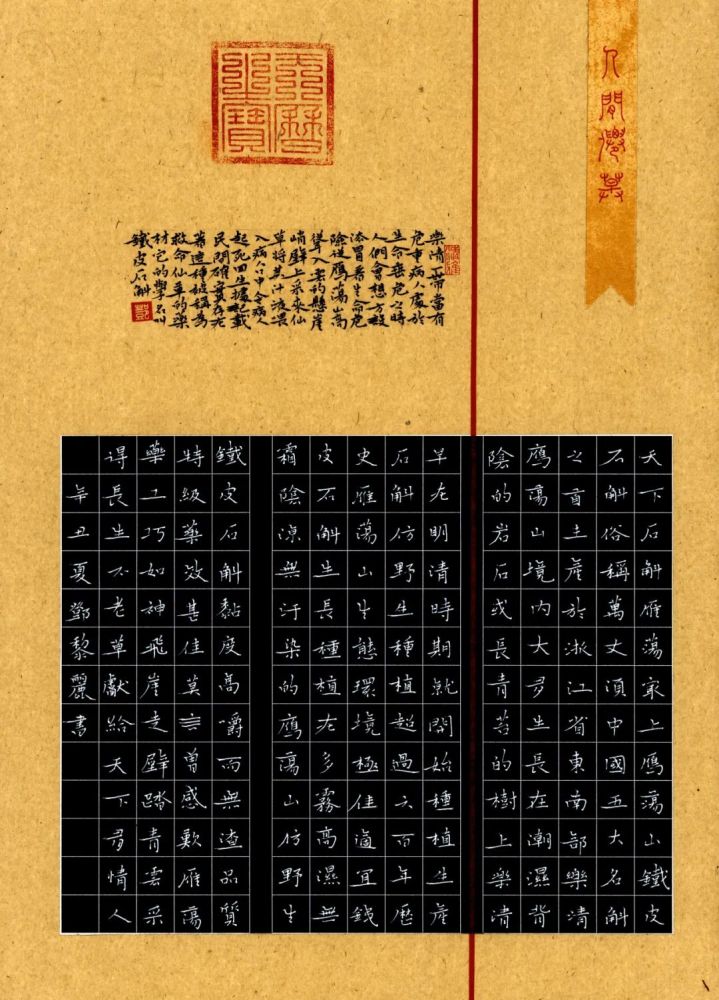 人間
天曆之寶
樂清一帶當有
危重病人處於
生命垂危之時
人們會想方設
法冒着生命危
險從鴈蕩山高
聳入雲的懸崖
峭壁上采來仙
草將其汁液喂
入病人口中令病人
起死回生據記載
民間確實存在
着這種被稱為
救命仙草的藥
材它的學名叫
鐵皮石斛
天下石斛雁蕩冣上鴈蕩山鐵皮
石斛俗稱萬丈須中國五大名斛
之首主產於浙江省東南部樂清
鴈蕩山境內大多生長在潮濕背
陰的岩石或長青苔的樹上樂清
早在明清時期就開始種植生產
石斛仿野生種植超過六百年歷
史雁蕩山生態環境極佳適宜鐵
皮石斛生長種植在多霧高濕無
霜陰涼無汙染的鴈蕩山仿野生
鐵皮石斛黏度高嚼而無渣品質
特級藥效甚佳莫言曾感歎雁蕩
藥工巧如神飛崖走壁踏青雲采
得長生不老草獻給天下有情人
辛丑夏鄧黎麗書